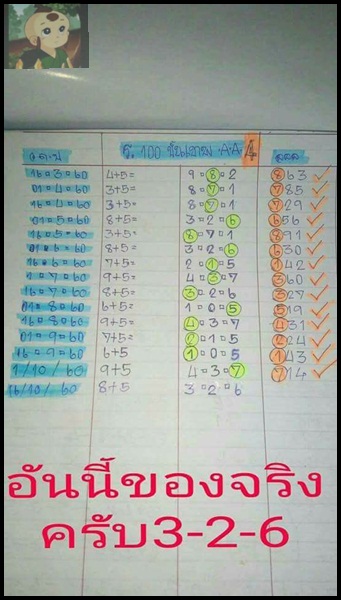 ว.ด.ป สูตร 100 ชั้นเทพ A.A. 4 ออก
16=3=60 4+5= 9=8=2 863 ✓
01=4=60 3+5= 8=7=1 785 ✓
16=4=60 3+5= 8=7=1 729 ✓
01=5=60 8+5= 3=2=6 656 ✓
16=5=60 3+5= 8=7=1 891 ✓
01=6=60 8+5= 3=2=6 630 ✓
16=6=60 7+5= 2=1=5 142 ✓
01=7=60 9+5= 4=3=7 360 ✓
16=7=60 8+5= 3=2=6 327 ✓
01=8=60 6+5= 1=0=5 519 ✓
16=8=60 9+5= 4=3=7 431 ✓
01=9=60 7+5= 2=1=5 224 ✓
16=9=60 6+5 1=0=5 143 ✓
1/10/60 9+5 4=3=7 714 ✓
16/10/60 8+5 3=2=6
อันนี้ของจริง
ครับ3-2-6